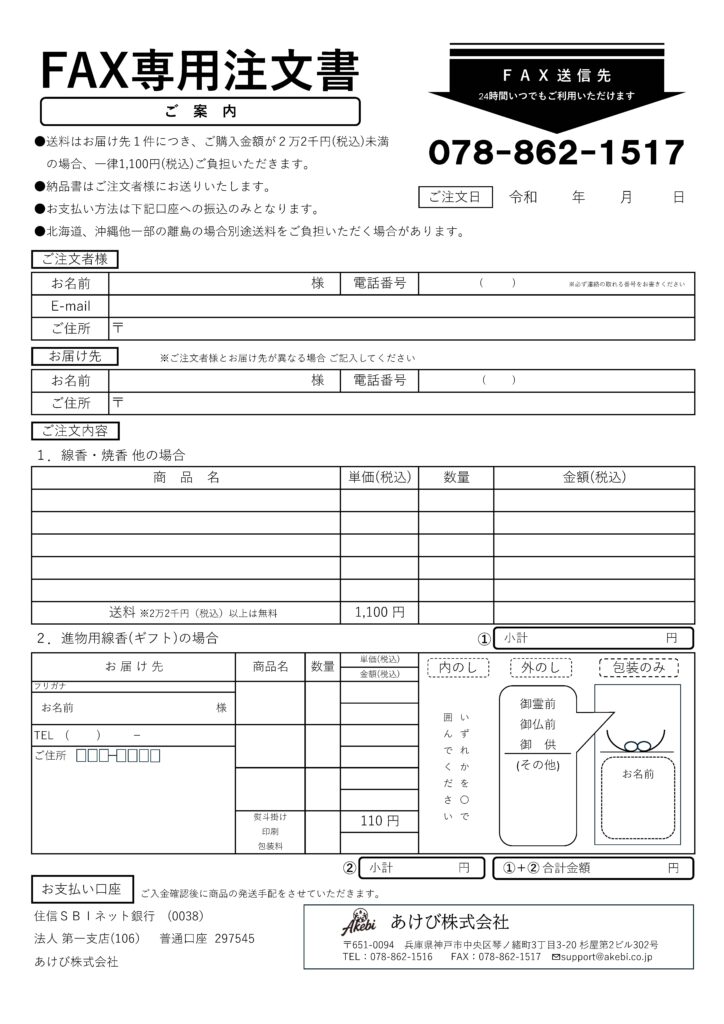 FAX専用注文書
ご 案 内
FAX送信先
24時間いつでもご利用いただけます
078-862-1517
●送料はお届け先1件につき、ご購入金額が2万2千円(税込)未満
の場合、一律1,100円(税込)ご負担いただきます。
●納品書はご注文者様にお送りいたします。
●お支払い方法は下記口座への振込のみとなります。
●北海道、沖縄他一部の離島の場合別途送料をご負担いただく場合があります。
ご注文日 令和 年 月 日
ご注文者様
お名前 様 電話番号 ( ) ※必ず連絡の取れる番号をお書きください
E-mail
ご住所 〒
お届け先 ※ご注文者様とお届け先が異なる場合 ご記入してください
お名前 様 電話番号 ( )
ご住所 〒
ご注文内容
1．線香・焼香 他の場合
商 品 名 単価(税込) 数量 金額(税込)
送料 ※2万2千円（税込）以上は無料 1,100 円
2．進物用線香(ギフト)の場合
① 小計 円
お届け先 商品名 数量 単価(税込)
金額(税込)
内のし 外のし 包装のみ
フリガナ
お名前 様
TEL ( ) −
ご住所 □□□-□□□□
いずれかを〇で
囲んでください
御霊前
御仏前
御 供
(その他)
お名前
熨斗掛け
印刷
包装料
110 円
② 小計 円
①+② 合計金額 円
お支払い口座 ご入金確認後に商品の発送手配をさせていただきます。
住信ＳＢＩネット銀行 (0038)
法人 第一支店(106) 普通口座 297545
あけび株式会社
Akebi あけび株式会社
〒651-0094 兵庫県神戸市中央区琴ノ緒町3丁目3-20 杉屋第2ビル302号
TEL：078-862-1516 FAX：078-862-1517 ✉support@akebi.co.jp